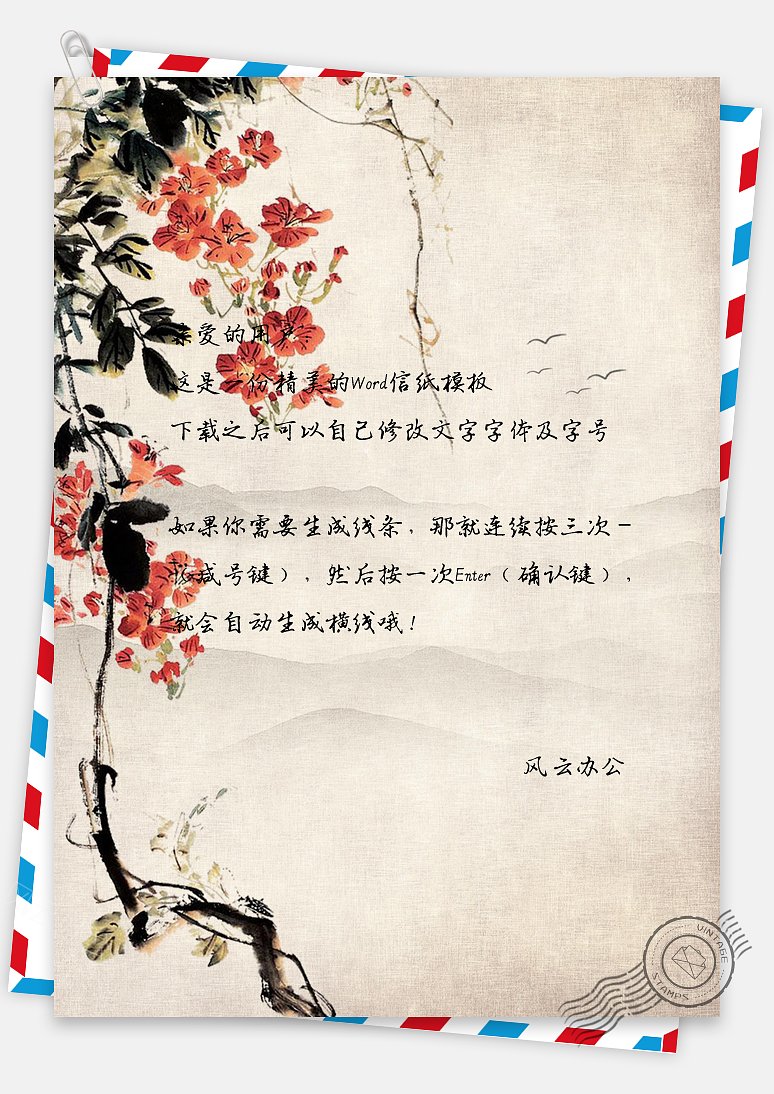 亲爱的用户：
这是一份精美的Word信纸模板
下载之后可以自己修改文字字体及字号
如果你需要生成线条，那就连续按三次－
减号键），然后按一次Enter（确认键），
就会自动生成横线哦！
风云办公
VINTAGE
STAMPS